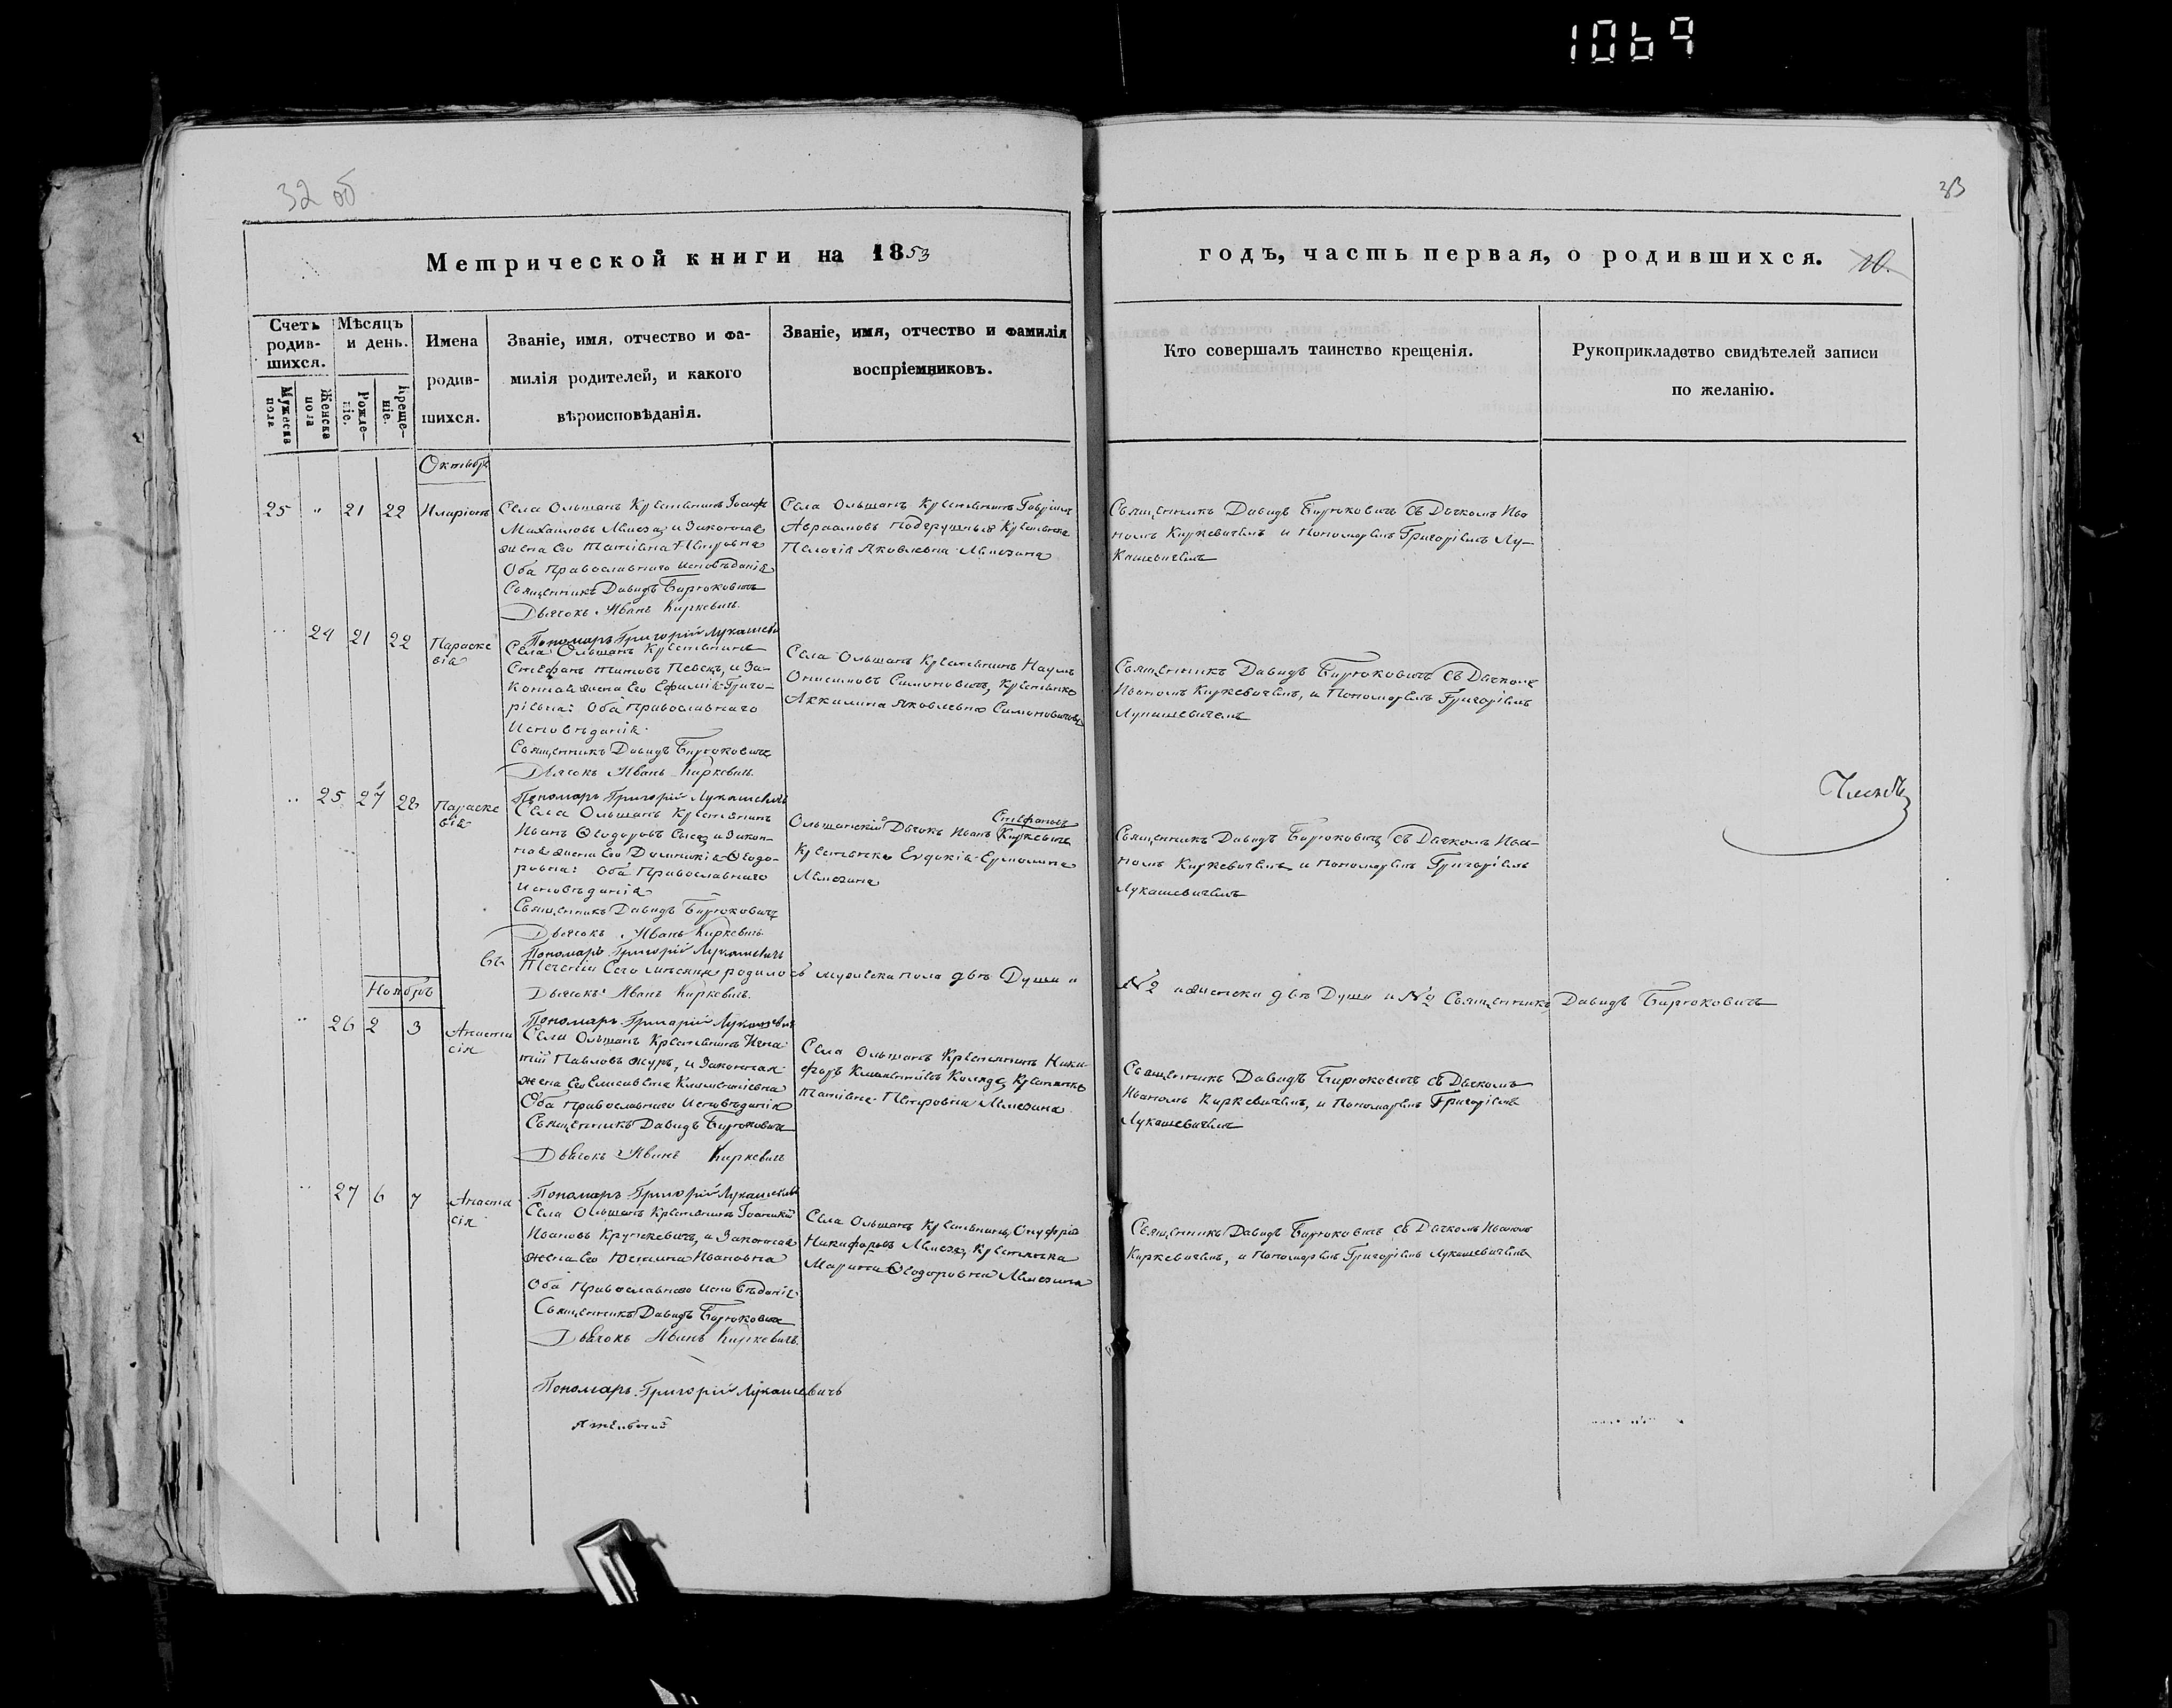 1069
32 об
33
Метрической книги на 1853
годъ, часть первая, о родившихся. 10.
Счетъ родив-шихся.
Мужеска пола
Женска пола
Мѣсяцъ и день.
Рожде-ніе.
Креще-ніе.
Имена
родив-
шихся.
Званіе, имя, отчество и фа-
милія родителей, и какого
вѣроисповѣданія.
Званіе, имя, отчество и фамилія
воспріемниковъ.
Кто совершалъ таинство крещенія.
Рукоприкладство свидѣтелей записи
по желанію.
Октябрь
25 " 21 22 Иларіонъ
Села Ольшанъ Крестьянинъ Іосифъ
Михаиловъ и Законная
жена его Татіана Петровна
Оба Православнаго Исповѣданія
Священникъ Давидъ Бирюковичъ
Дьячокъ Иванъ Киркевичъ.
Пономарь Григорій Лукашевичъ
Села Ольшанъ Крестьянинъ Гавріилъ
Авраамовъ Крестьянка
Пелагія Яковлевна
Священникъ Давидъ Бирюковичъ съ Дьячкомъ Ива
номъ Киркевичемъ и Пономаремъ Григоріемъ Лу-
кашевичемъ
" 24 21 22 Параске
вія
Села Ольшанъ Крестьянинъ
Стефанъ Титовъ и За-
конная жена его Ефимія Григо-
ріевна: Оба Православнаго
Исповѣданія
Священникъ Давидъ Бирюковичъ
Дьячокъ Иванъ Киркевичъ.
Пономарь Григорій Лукашевичъ
Села Ольшанъ Крестьянинъ Наумъ
Онисимовъ Симоновичъ, Крестьянка
Акилина Яковлевна Симоновичова
Священникъ Давидъ Бирюковичъ съ Дьячкомъ
Иваномъ Киркевичемъ, и Пономаремъ Григоріемъ
Лукашевичемъ
" 25 27 28 Параске
вія
Села Ольшанъ Крестьянинъ
Иванъ Ѳеодоровъ и Закон-
ная жена его Домникія Ѳеодо-
ровна: Оба Православнаго
Исповѣданія
Священникъ Давидъ Бирюковичъ
Дьячокъ Иванъ Киркевичъ.
Пономарь Григорій Лукашевичъ
Стефановъ
Ольшанскій Дьячокъ Иванъ Киркевичъ
Крестьянка Евдокія
Священникъ Давидъ Бирюковичъ съ Дьячкомъ Ива-
номъ Киркевичемъ и Пономаремъ Григоріемъ
Лукашевичемъ
Въ теченіи Сего мѣсяца родилось мужеска пола двѣ Души и
№ 2 и женска двѣ Души и № 2 Священникъ Давидъ Бирюковичъ
Дьячокъ Иванъ Киркевичъ.
Пономарь Григорій Лукашевичъ
Ноябрь
" 26 2 3 Анаста
сія
Села Ольшанъ Крестьянинъ Игна
тій Павловъ и Законная
жена его Елисавета Климентіевна
Оба Православнаго Исповѣданія
Священникъ Давидъ Бирюковичъ
Дьячокъ Иванъ Киркевичъ
Пономарь Григорій Лукашевичъ
Села Ольшанъ Крестьянинъ Ники
форъ Климентіевъ Коляда, Крестьянка
Татіана Петровна
Священникъ Давидъ Бирюковичъ съ Дьячкомъ
Иваномъ Киркевичемъ, и Пономаремъ Григоріемъ
Лукашевичемъ
" 27 6 7 Анаста
сія
Села Ольшанъ Крестьянинъ Іоанникій
Ивановъ Крупкевичъ, и Законная
жена его Юстина Ивановна
Оба Православнаго Исповѣданія
Священникъ Давидъ Бирюковичъ
Дьячокъ Иванъ Киркевичъ.
Пономарь Григорій Лукашевичъ
Села Ольшанъ Крестьянинъ Онуфрій
Никифоровъ Крестьянка
Марина Ѳеодоровна
Священникъ Давидъ Бирюковичъ съ Дьячкомъ Иваномъ
Киркевичемъ, и Пономаремъ Григоріемъ Лукашевичемъ